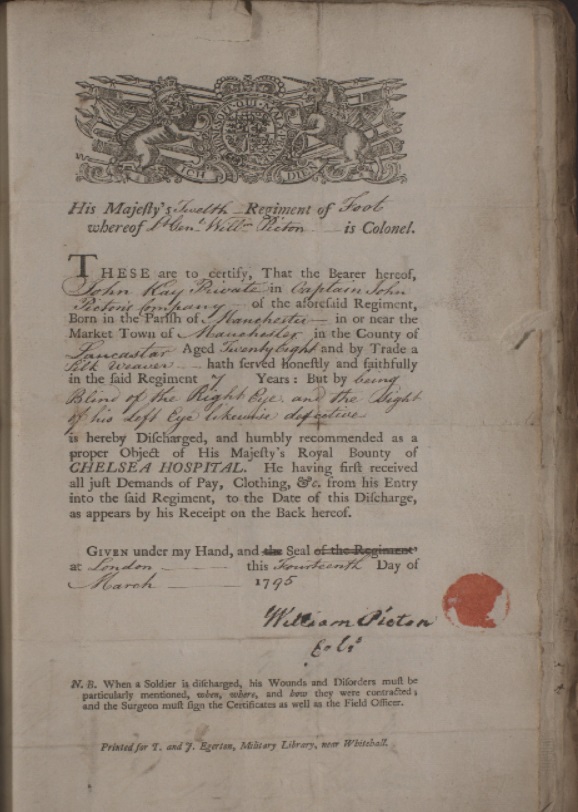 HONI SOIT QUI MAL Y PENSE
ICH DIEN
His Majeſty's Twelfth Regiment of Foot
whereof Lt Genl Willm Picton is Colonel.
THESE are to certify, That the Bearer hereof,
John Kay Private in Captain John
Picton's Company of the aforeſaid Regiment,
Born in the Pariſh of Manchester in or near the
Market Town of Manchester in the County of
Lancaster Aged Twenty Eight and by Trade a
Silk Weaver hath ſerved honeſtly and faithfully
in the ſaid Regiment 7 Years: But by being
Blind of the Right Eye and the Sight
of his Left Eye likewise defective
is hereby Diſcharged, and humbly recommended as a
proper Object of His Majeſty's Royal Bounty of
CHELSEA HOSPITAL. He having firſt received
all juſt Demands of Pay, Clothing, &c. from his Entry
into the ſaid Regiment, to the Date of this Diſcharge,
as appears by his Receipt on the Back hereof.
GIVEN under my Hand, and the Seal of the Regiment
at London this Fourteenth Day of
March 1795
William Picton
Col:
N. B. When a Soldier is diſcharged, his Wounds and Diſorders muſt be
particularly mentioned, when, where, and how they were contracted;
and the Surgeon muſt ſign the Certificates as well as the Field Officer.
Printed for T. and J. Egerton, Military Library, near Whitehall.